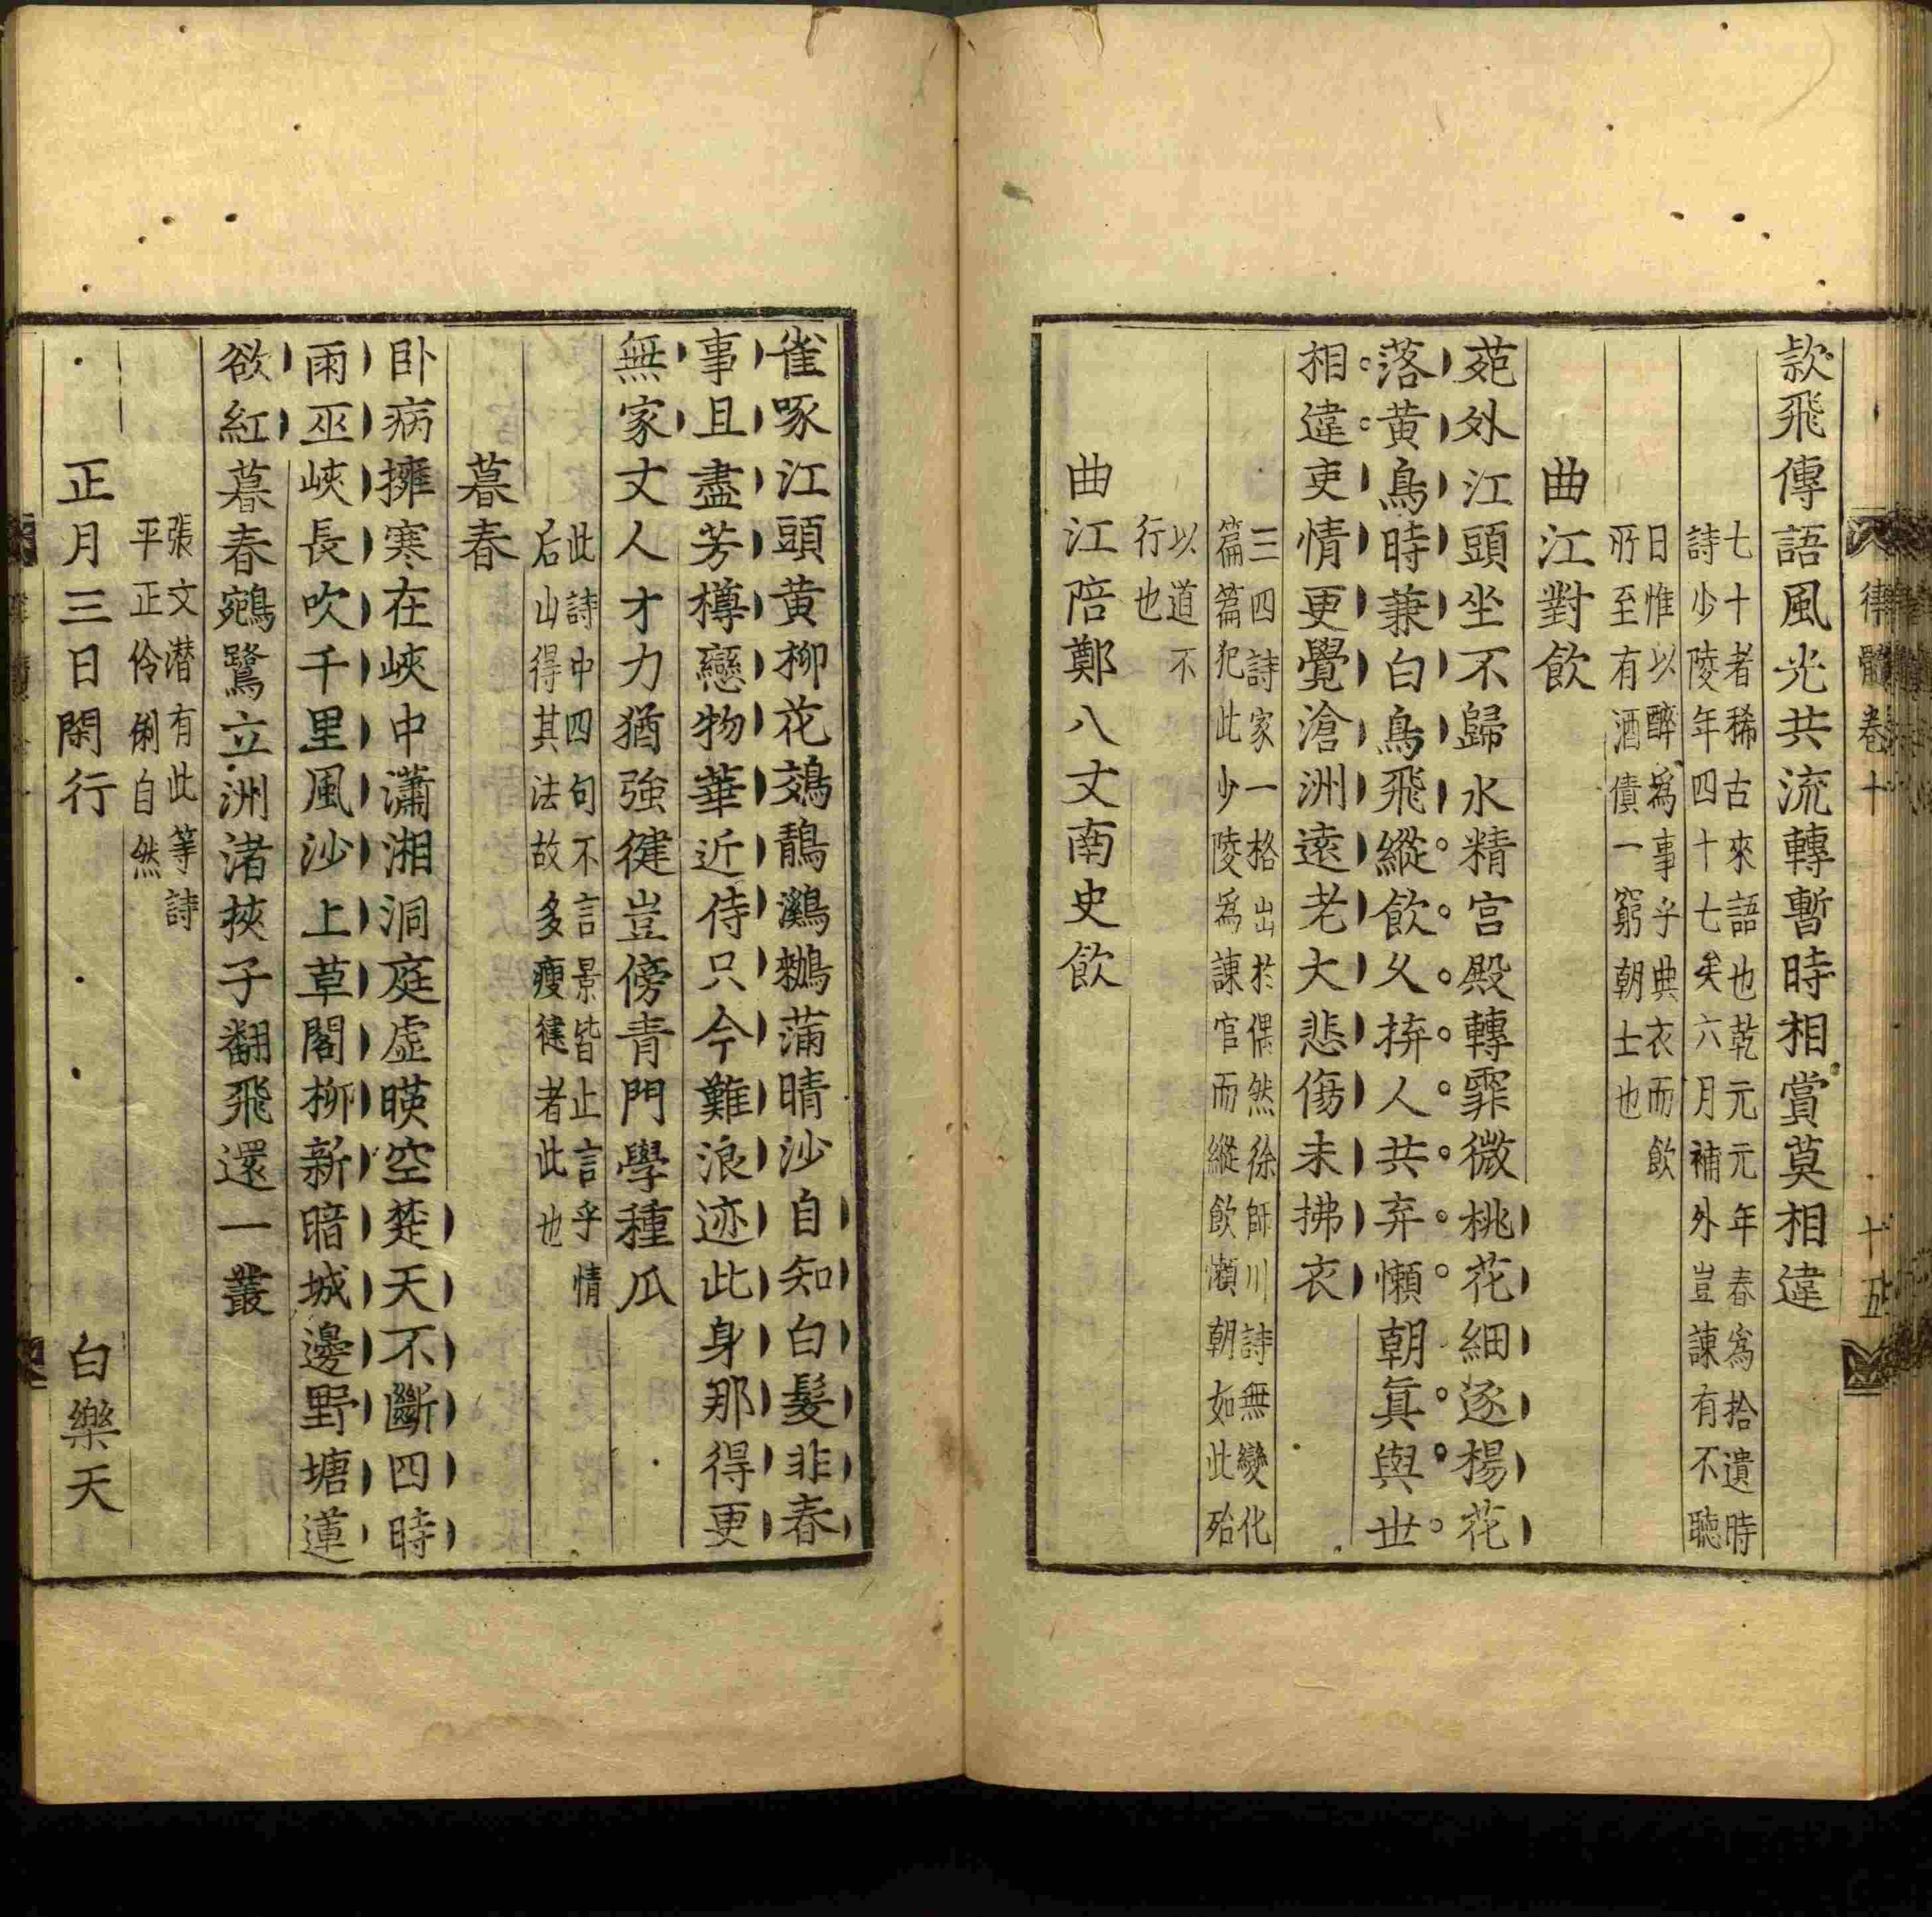 律髓卷十 十五
款飛傳語風光共流轉暫時相賞莫相違
七十者稀古來語也乾元元年春爲拾遺時
詩少陵年四十七矣六月補外豈諫有不聽
日惟以醉爲事乎典衣而飲
所至有酒債一窮朝士也
曲江對飲
苑外江頭坐不歸水精宮殿轉霏微桃花細逐楊花
落黃鳥時兼白鳥飛縱飲久拚人共弃懶朝眞與世
相違吏情更覺滄洲遠老大悲傷未拂衣
三四詩家一格出於偶然徐師川詩無變化
篇篇犯此少陵爲諫官而縱飲懶朝如此殆
以道不
行也
曲江陪鄭八丈南史飲
雀啄江頭黃柳花鵁鶄鸂鶒蒲晴沙自知白髮非春
事且盡芳樽戀物華近侍只今難浪迹此身那得更
無家丈人才力猶強健豈傍青門學種瓜
此詩中四句不言景皆止言乎情
后山得其法故多瘦健者此也
暮春
卧病擁寒在峽中瀟湘洞庭虛暎空楚天不斷四時
雨巫峽長吹千里風沙上草閣柳新暗城邊野塘蓮
欲紅暮春鵷鷺立洲渚挾子翻飛還一叢
張文潜有此等詩
平正伶俐自然
正月三日閑行 白樂天